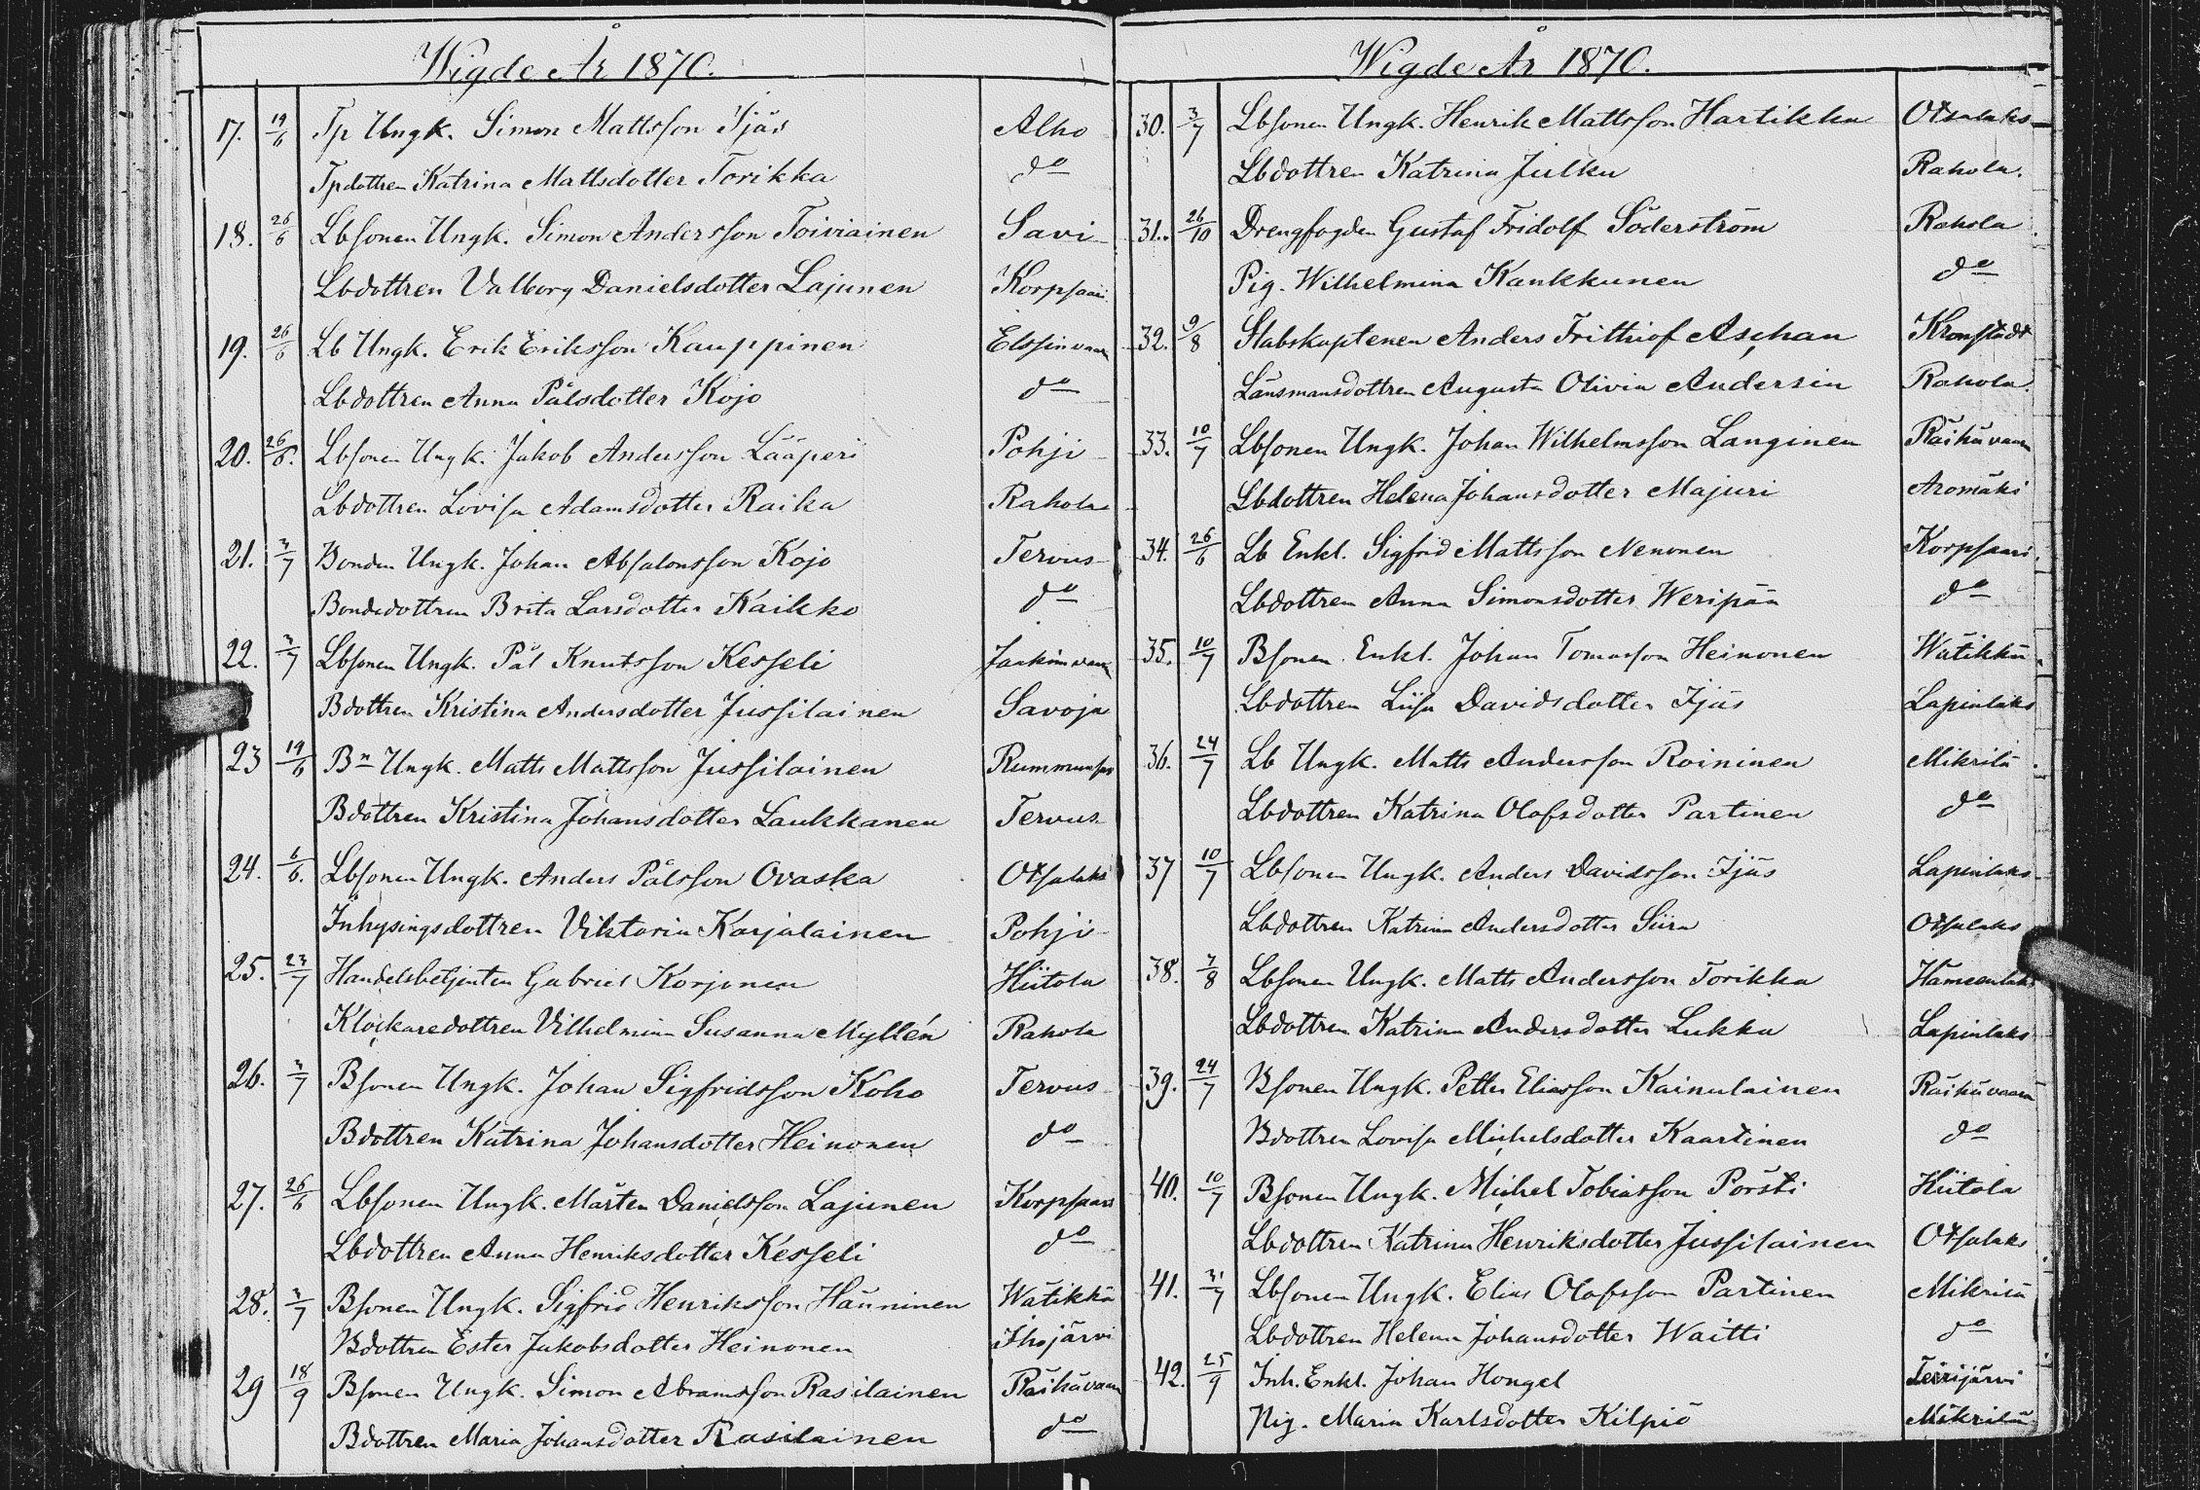 Wigde År 1870.
17. 19/6 Tp Ungk. Simon Mattsson Ijäs Alho
Tpdottren Katrina Mattsdotter Torikka do
18. 26/6 Lbsonen Ungk. Simon Andersson Toiviainen Savi
Lbdottren Valborg Danielsdotter Lajunen Korpsaari
19. 26/6 Lb Ungk. Erik Eriksson Kauppinen Elssinvaara
Lbdottren Anna Pålsdotter Kojo do
20. 26/6. Lbsonen Ungk. Jakob Andersson Lääperi Pohji
Lbdottren Lovisa Adamsdotter Raika Rahola
21. 3/7 Bonden Ungk. Johan Absalonsson Kojo Tervus
Bondedottren Brita Larsdotter Kaikko do
22. 3/7 Lbsonen Ungk. Pål Knutsson Kesseli Jaakimvaara
Bdottren Kristina Andersdotter Jussilainen Savoja
23 19/6 Bn Ungk. Matts Mattsson Jussilainen
Bdottren Kristina Johansdotter Laukkanen Tervus
24. 6/6. Lbsonen Ungk. Anders Pålsson Ovaska Otsalaks
Inhysingsdottren Viktoria Karjalainen Pohji
25. 23/7 Handelsbetjenten Gabriel Korjonen Hiitola
Klockaredottren Vilhelmina Susanna Myllén Rahola
26. 3/7 Bsonen Ungk. Johan Sigfridsson Koho Tervus
Bdottren Katrina Johansdotter Heinonen do
27. 26/6 Lbsonen Ungk. Mårten Danielsson Lajunen Korpsaari
Lbdottren Anna Henriksdotter Kesseli do
28. 3/7 Bsonen Ungk. Sigfrid Henriksson Hänninen Wätikkä
Bdottren Ester Jakobsdotter Heinonen Ihojärvi
29 18/9 Bsonen Ungk. Simon Abramsson Rasilainen Räihävaara
Bdottren Maria Johansdotter Rasilainen do
Wigde År 1870.
30. 3/7 Lbsonen Ungk. Henrik Mattsson Hartikka Otsalaks
Lbdottren Katrina Julku Rahola.
31. 26/10 Drengfogden Gustaf Fridolf Söderström Rahola
Pig. Wilhelmina Kaukkunen do
32. 9/8 Stabskaptenen Anders Frithiof Aschan Kronstadt
Länsmansdottren Augusta Olivia Andersin Rahola.
33. 10/7 Lbsonen Ungk. Johan Wilhelmsson Langinen Räihävaara
Lbdottren Helena Johansdotter Majuri Aromäki
34. 26/6 Lb Enkl. Sigfrid Mattsson Nenonen Korpsaari.
Lbdottren Anna Simonsdotter Weripää do
35. 10/7 Bsonen Enkl. Johan Tomasson Heinonen Wätikkä
Lbdottren Liisa Davidsdotter Ijäs Lapinlaks
36. 24/7 Lb Ungk. Matts Andersson Roininen Mikrilä
Lbdottren Katrina Olofsdotter Partinen do
37 10/7 Lbsonen Ungk. Anders Davidsson Ijäs Lapinlaks
Lbdottren Katrina Andersdotter Siira Otsalaks
38. 7/8 Lbsonen Ungk. Matts Andersson Torikka Hämeenlaks
Lbdottren Katrina Andersdotter Lukka Lapinlaks
39. 24/7 Bsonen Ungk. Petter Eliasson Kainulainen Räihävaara
Bdottren Lovisa Michelsdotter Kaartinen do
40. 10/7 Bsonen Ungk. Michel Tobiasson Pörsti Hiitola
Lbdottren Katrina Henriksdotter Jussilainen Otsalaks
41. 31/7 Lbsonen Ungk. Elias Olofsson Partinen Mikrilä
Lbdottren Helena Johansdotter Waitti do
42. 25/9 Inh. Enkl. Johan Hongel Teirijärvi
Pig. Maria Karlsdotter Kilpiö Mikrilä